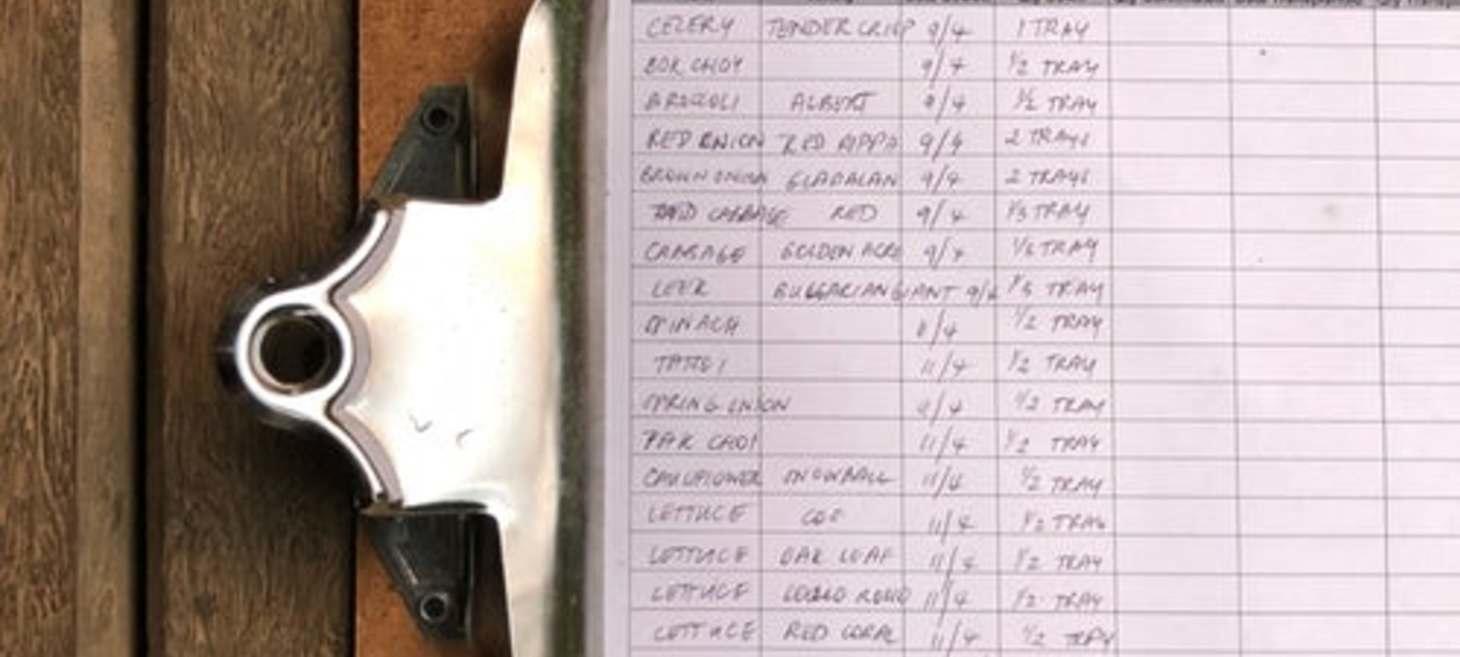 CELERY TENDER CRISP 9/4 1 TRAY
BOK CHOY 9/4 1/2 TRAY
BROCCOLI ALBERT 9/4 1/2 TRAY
RED ONION RED 9/4 2 TRAYS
BROWN ONION GLADALAN 9/4 2 TRAYS
CABBAGE RED 9/4 1/3 TRAY
CABBAGE GOLDEN ACRE 9/4 TRAY
LEEK BULGARIAN GIANT 9/4 TRAY
SPINACH 1/2 TRAY
TATSOI 11/4 1/2 TRAY
SPRING ONION 1/2 TRAY
PAK CHOI 11/4 1/2 TRAY
CAULIFLOWER SNOWBALL 11/4 1/2 TRAY
LETTUCE COS 11/4 1/2 TRAY
LETTUCE OAK LEAF 11/4 1/2 TRAY
LETTUCE 11/4 1/2 TRAY
LETTUCE RED CORAL 11/4 1/2 TRAY